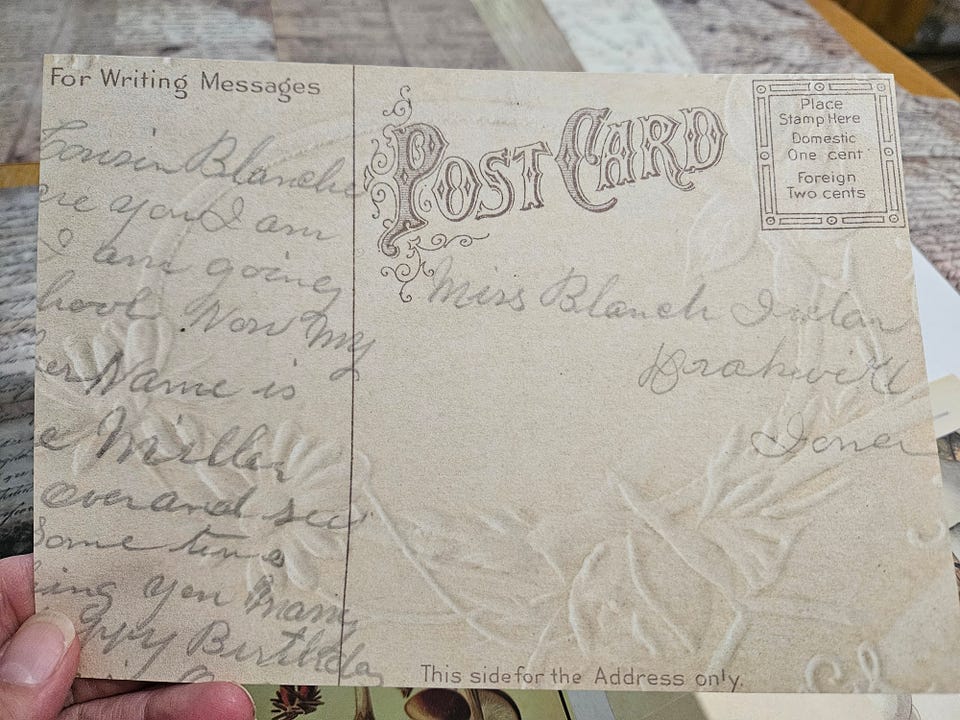 For Writing Messages
Cousin Blanche
re you I am
I am going
hool Now My
er Name is
e Miller
over and see
Some time
hing you Many
ppy Birthda
POST CARD
Place
Stamp Here
Domestic
One cent
Foreign
Two cents
Miss Blanch
This side for the Address only.